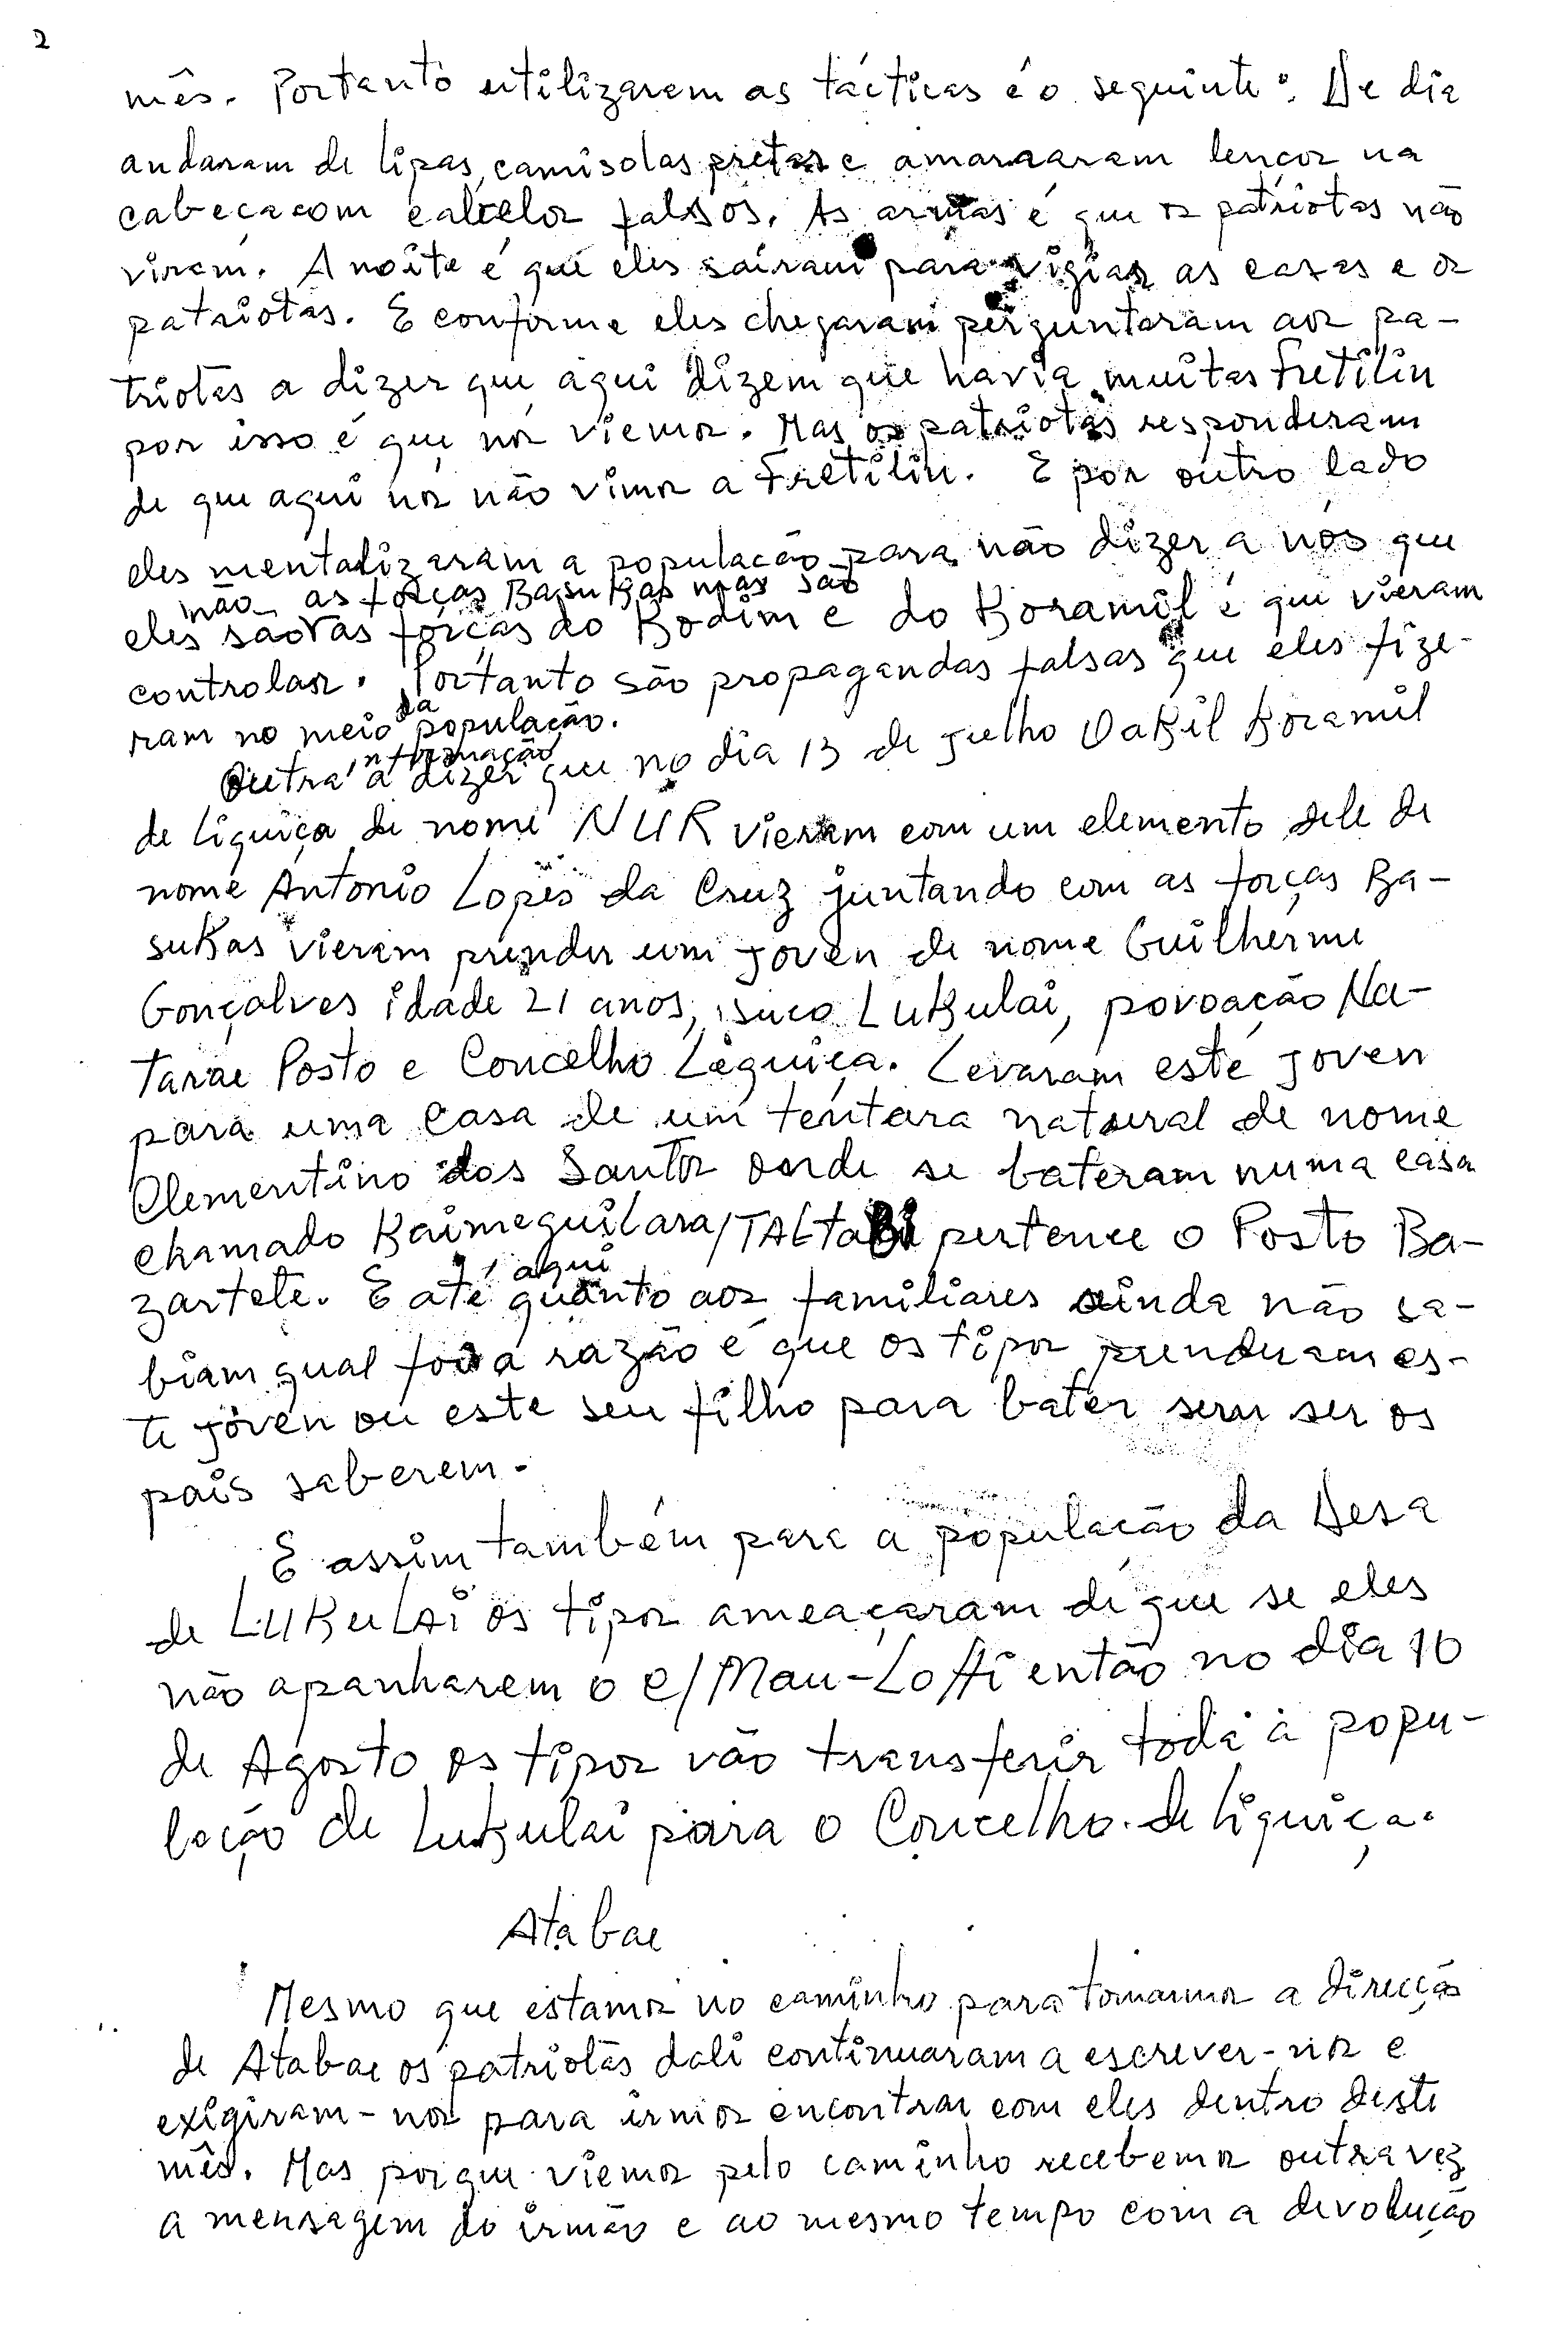 2
mês. Portanto utilizaram as tácticas é o seguinte: De dia
andaram de lipas, camisolas pretas e amarraram lenços na
cabeça com cabelos falsos. As armas é que os patriotas não
viram. A noite é que eles sairam para vigiar as casas e os
patriotas. E conforme eles chegaram perguntaram aos pa-
triotas a dizer que aqui dizem que havia muitas Fretilin
por isso é que nós viemos. Mas os patriotas responderam
de que aqui nós não vimos a Fretilin. E por outro lado
eles mentalizaram a população para não dizer a nós que
não as forças Basukas mas são
eles são as forças do Kodim e do Koramil é que vieram
controlar. Portanto são propagandas falsas que eles fize-
ram no meio da população.
Outra informação a dizer que no dia 13 de Julho Wakil Koramil
de Liquiça de nome NUR vieram com um elemento dele de
nome Antonio Lopes da Cruz juntando com as forças Ba-
sukas vieram prender um joven de nome Guilherme
Gonçalves idade 21 anos, suco Lukulai, povoação Na-
tarae Posto e Concelho Liquiça. Levaram este joven
para uma casa de um tentara natural de nome
Clementino dos Santos onde se bateram numa casa
chamado Kaimeguilara/TALTABI pertence o Posto Ba-
zartete. E até aqui quanto aos familiares ainda não sa-
biam qual foi a razão é que os tipos prenderam es-
te jovén ou este seu filho para bater sem ser os
pais saberem.
E assim também para a população da Desa
de LUKULAI os tipos ameaçaram de que se eles
não apanharem o c/Mau-Loffi então no dia 10
de Agosto os tipos vão transferir toda a popu-
lação de Lukulai para o Concelho de Liquiça.
Atabae
Mesmo que estamos no caminho para tomarmos a direcção
de Atabae os patriotas dali continuaram a escrever-nos e
exigiram-nos para irmos encontrar com eles dentro deste
mês. Mas porque viemos pelo caminho recebemos outra vez
a mensagem do irmão e ao mesmo tempo com a devolução